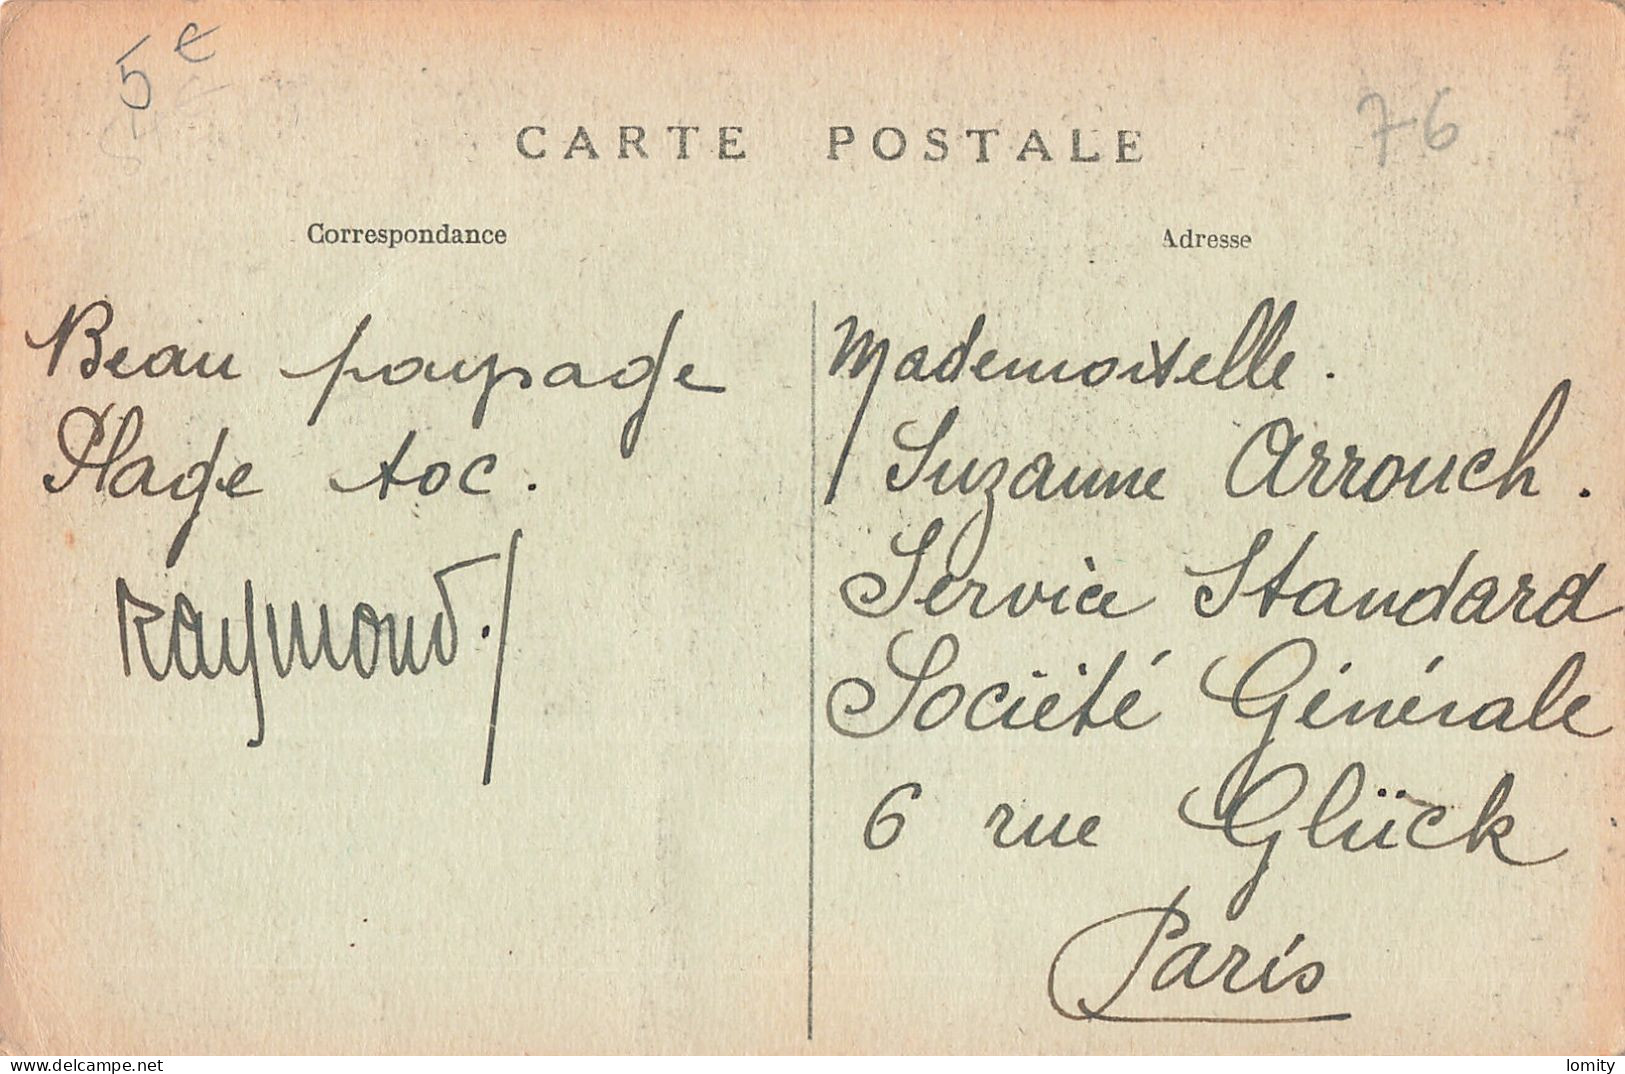 5 e
76
CARTE POSTALE
Correspondance
Adresse
Beau paysage
Plage toc.
Raymond.
Mademoiselle.
Suzanne Arrouch.
Service Standard
Société Générale
6 rue Glück
Paris
lomity